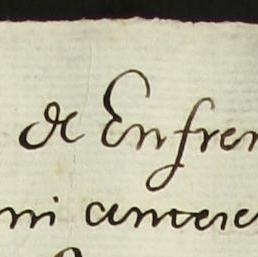 de Enfren
mi antece